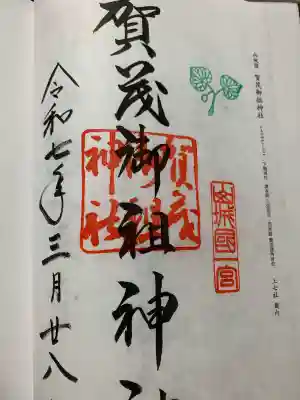 山城国 賀茂御祖神社
上七社 最内
山城國一宮
賀茂御祖神社
賀茂御祖神
令和七年三月廿八